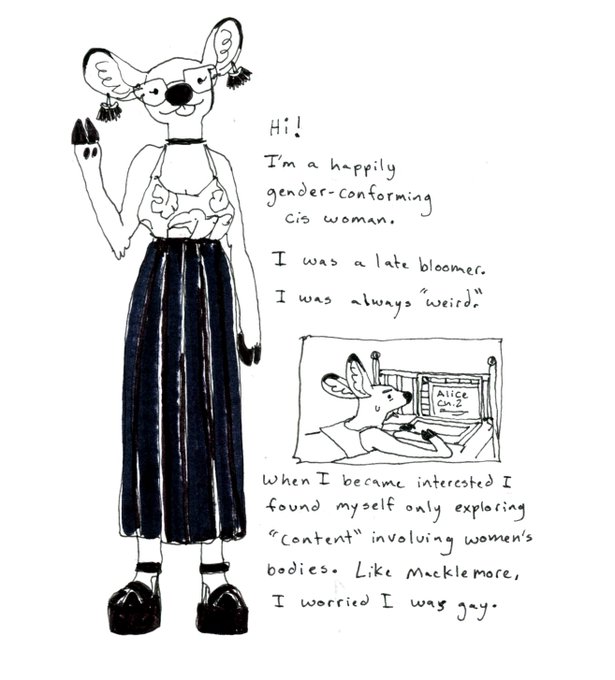 Hi!
I'm a happily
gender-conforming
cis woman.
I was a late bloomer.
I was always "weird."
Alice
Ch. 2
When I became interested I
found myself only exploring
"content" involving women's
bodies. Like Macklemore,
I worried I was gay.